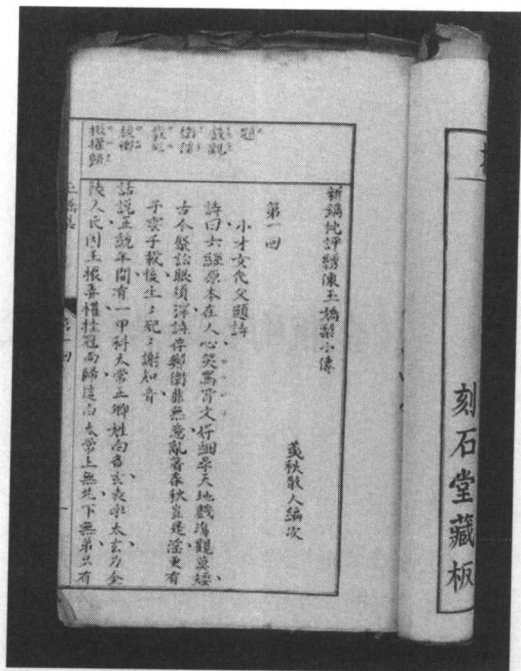 刻石堂藏板
新鐫批評綉像玉嬌梨小傳
荑秋散人編次
第一回
小才女代父題詩
詩曰六經原本在人心笑罵皆文好細尋天地戲塲觀莫矮
古今聚訟眼須深詩存鄭衛非無意亂著春秋豈是淫更有
子雲千載後生生死死謝知音
話說正統年間有一甲科太常正卿姓白名玄表字太玄乃金
陵人氏因王振弄權掛冠而歸這白太常上無兄下無弟只有